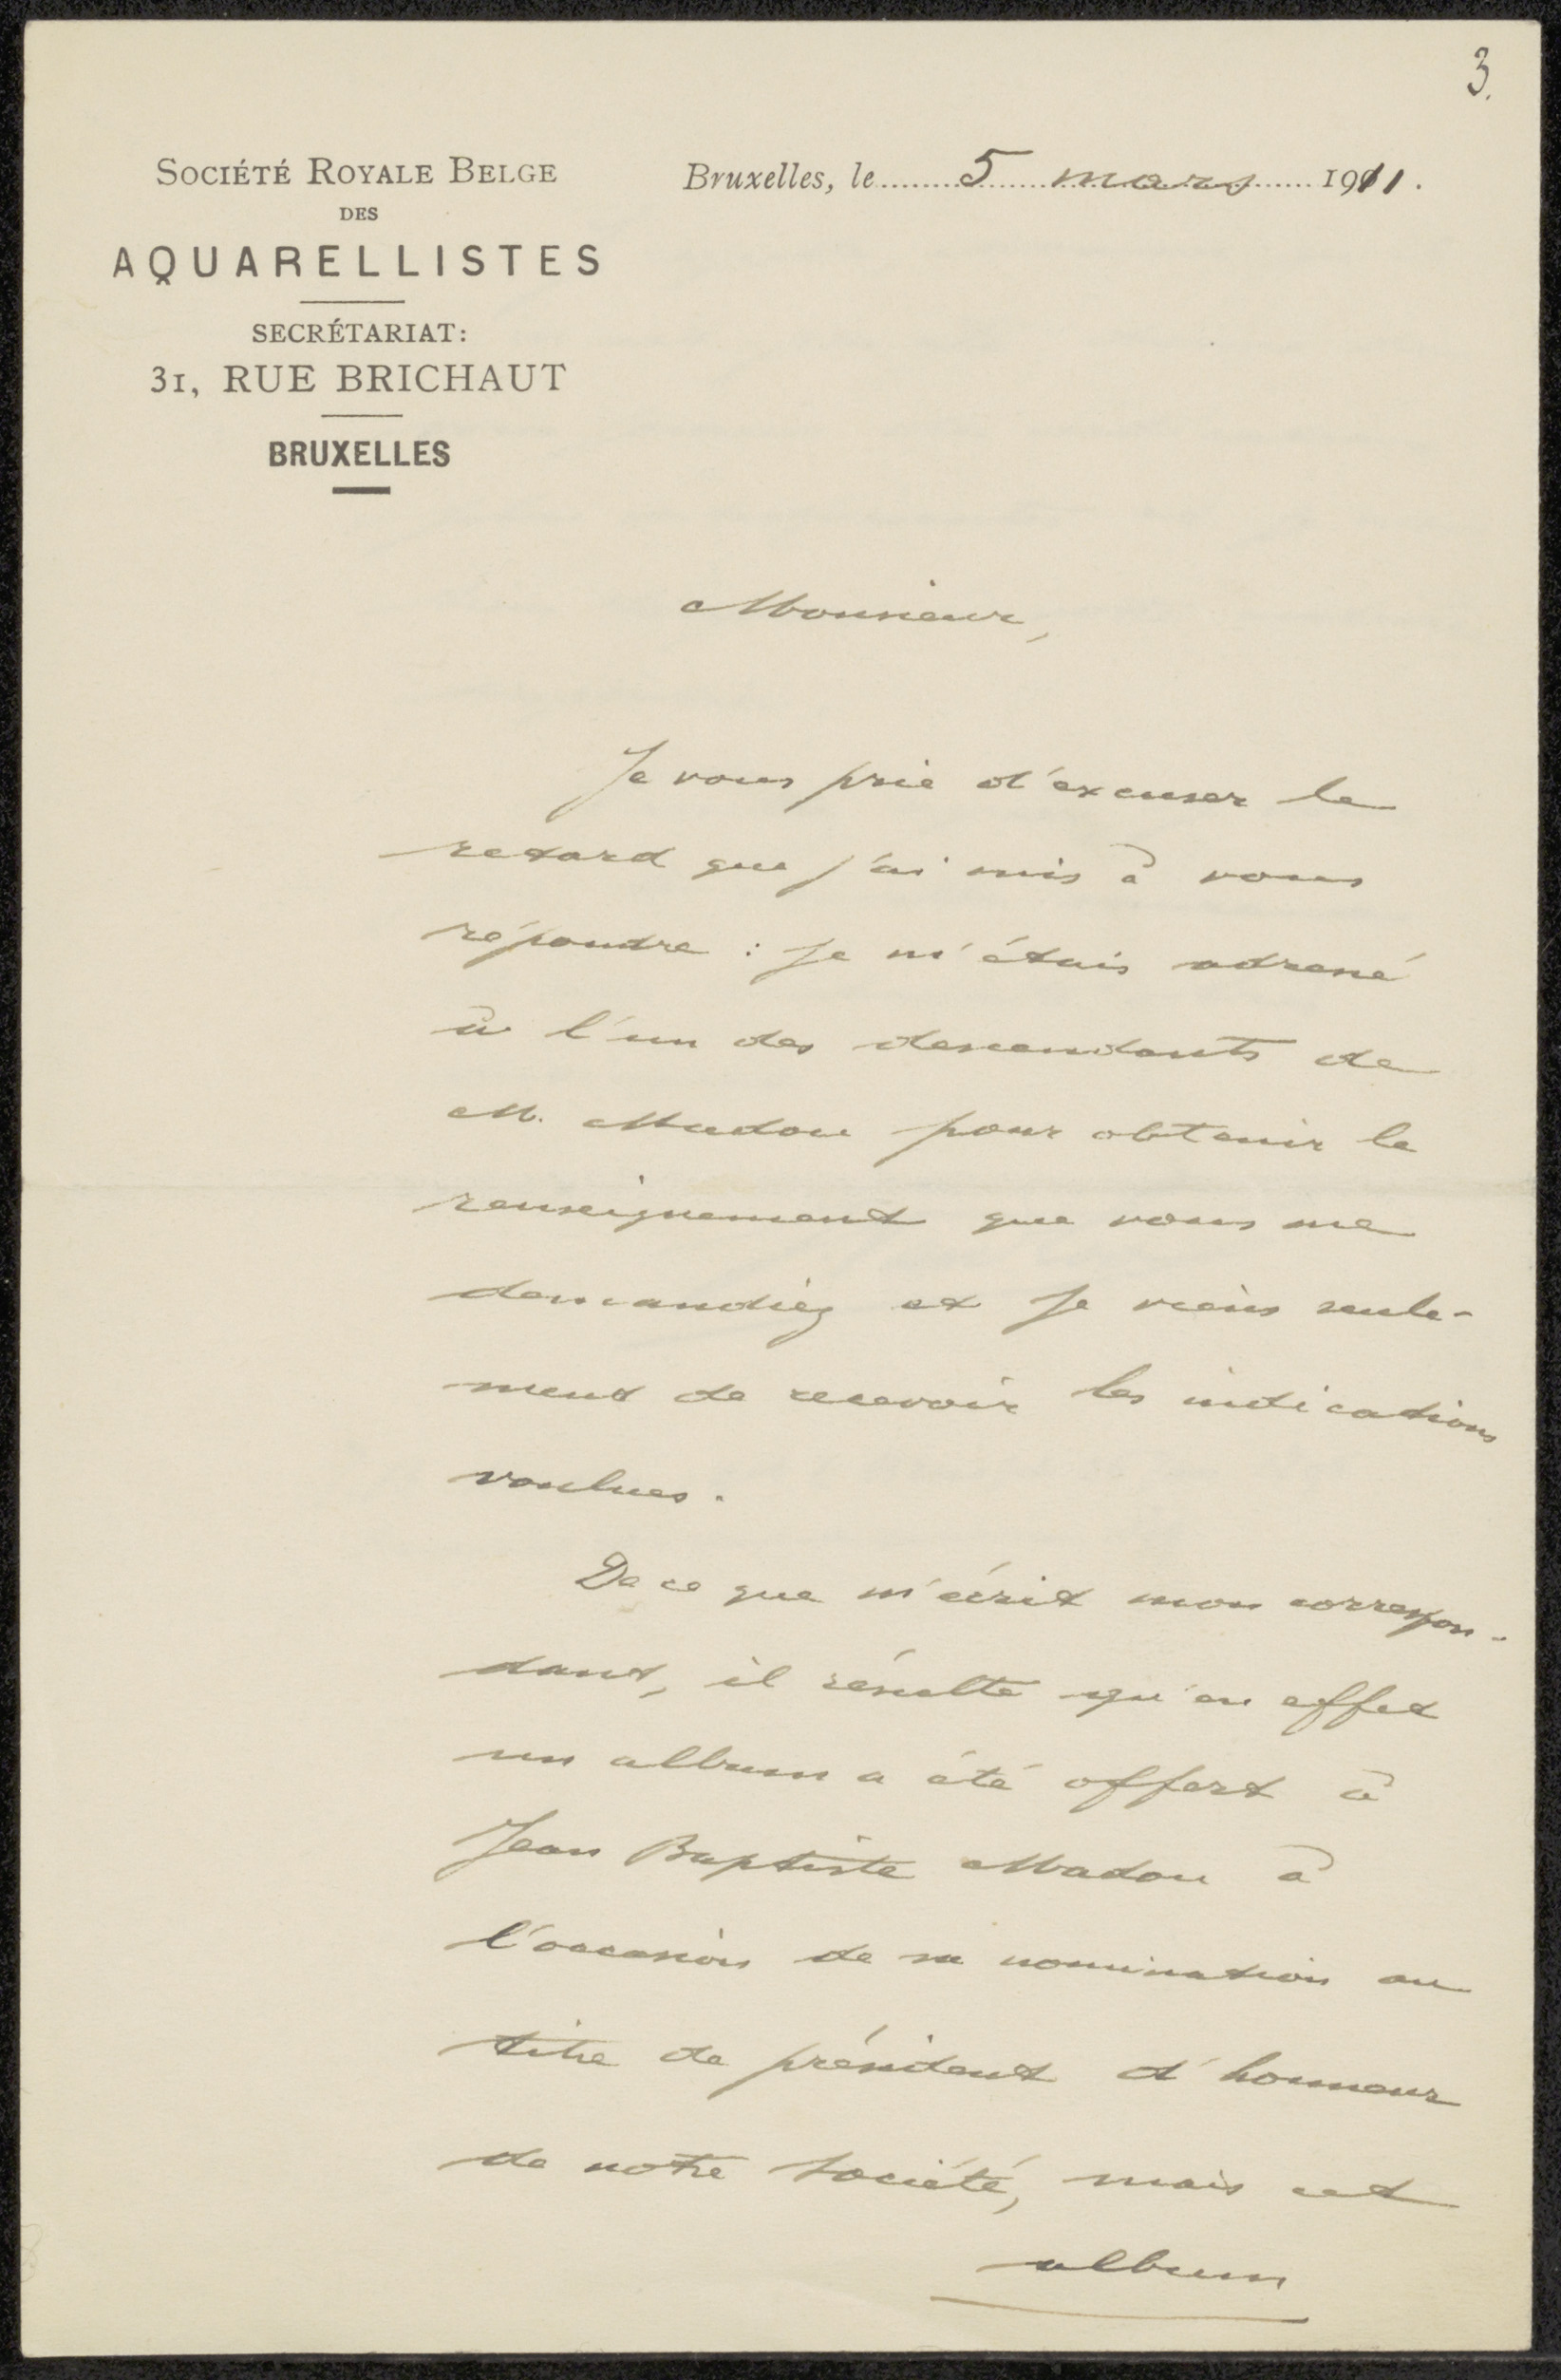 3.
SOCIÉTÉ ROYALE BELGE
DES
AQUARELLISTES
SECRÉTARIAT:
31, RUE BRICHAUT
BRUXELLES
Bruxelles, le 5 mars 1911.
Monsieur,
Je vous prie d'excuser le
retard que j'ai mis à vous
répondre : je m'étais adressé
à l'un des descendants de
M. Madou pour obtenir le
renseignement que vous me
demandiez et je viens seule-
ment de recevoir les indications
voulues.
De ce que m'écrit mon correspon-
dant, il résulte qu'en effet
un album a été offert à
Jean Baptiste Madou à
l'occasion de sa nomination au
titre de président d'honneur
de notre Société, mais cet
album